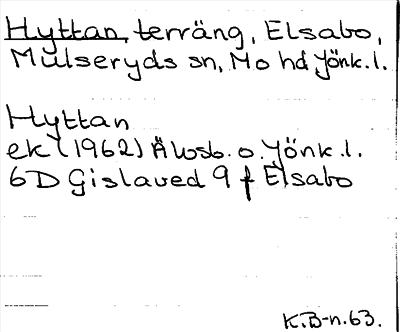 Hyttan, terräng, Elsabo,
Mulseryds sn, Mo hd Jönk.l.
Hyttan
ek (1962) Älvsb. o. Jönk.l.
6D Gislaved 9 f Elsabo
K.B-n.63.